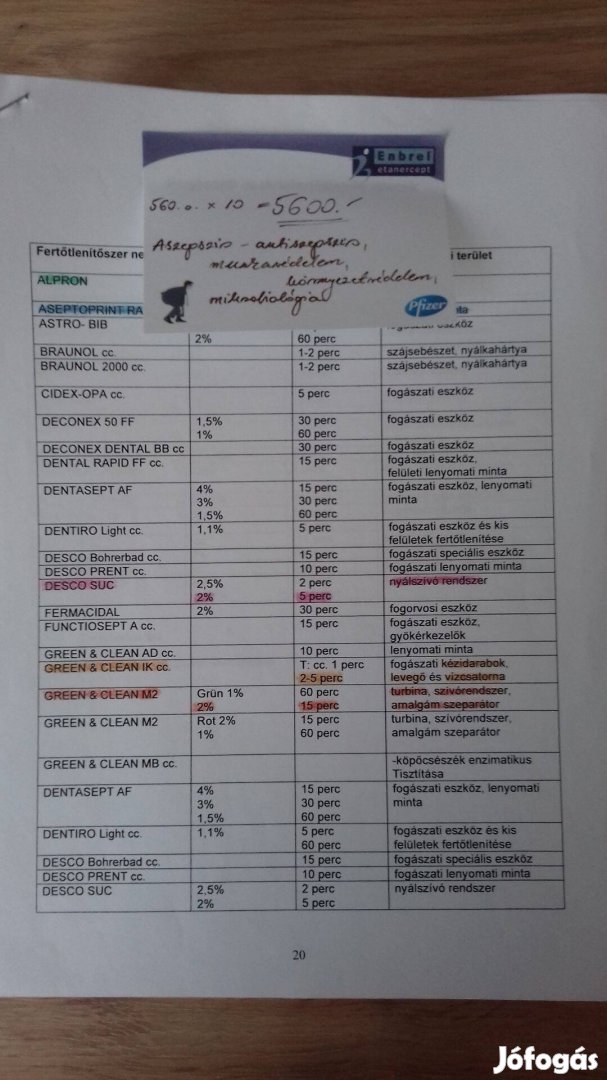 Enbrel
etanercept
560.o. x 10 = 5600.-
Aszepszis - antiszepszis,
munkavédelem,
környezetvédelem,
mikrobiológia
Pfizer
Fertőtlenítőszer ne i terület
ALPRON
ASEPTOPRINT RA nta
ASTRO- BIB fogászati eszköz
2% 60 perc
BRAUNOL cc. 1-2 perc szájsebészet, nyálkahártya
BRAUNOL 2000 cc. 1-2 perc szájsebészet, nyálkahártya
CIDEX-OPA cc. 5 perc fogászati eszköz
DECONEX 50 FF 1,5% 30 perc fogászati eszköz
1% 60 perc
DECONEX DENTAL BB cc 30 perc fogászati eszköz
DENTAL RAPID FF cc. 15 perc fogászati eszköz,
felületi lenyomati minta
DENTASEPT AF 4% 15 perc fogászati eszköz, lenyomati
3% 30 perc minta
1,5% 60 perc
DENTIRO Light cc. 1,1% 5 perc fogászati eszköz és kis
felületek fertőtlenítése
DESCO Bohrerbad cc. 15 perc fogászati speciális eszköz
DESCO PRENT cc. 10 perc fogászati lenyomati minta
DESCO SUC 2,5% 2 perc nyálszívó rendszer
2% 5 perc
FERMACIDAL 2% 30 perc fogorvosi eszköz
FUNCTIOSEPT A cc. 15 perc fogászati eszköz,
gyökérkezelők
GREEN & CLEAN AD cc. 10 perc lenyomati minta
GREEN & CLEAN IK cc. T: cc. 1 perc fogászati kézidarabok,
2-5 perc levegő és vízcsatorna
GREEN & CLEAN M2 Grün 1% 60 perc turbina, szívórendszer,
2% 15 perc amalgám szeparátor
GREEN & CLEAN M2 Rot 2% 15 perc turbina, szívórendszer,
1% 60 perc amalgám szeparátor
GREEN & CLEAN MB cc. -köpőcsészék enzimatikus
Tisztítása
DENTASEPT AF 4% 15 perc fogászati eszköz, lenyomati
3% 30 perc minta
1,5% 60 perc
DENTIRO Light cc. 1,1% 5 perc fogászati eszköz és kis
60 perc felületek fertőtlenítése
DESCO Bohrerbad cc. 15 perc fogászati speciális eszköz
DESCO PRENT cc. 10 perc fogászati lenyomati minta
DESCO SUC 2,5% 2 perc nyálszívó rendszer
2% 5 perc
20
Jófogás